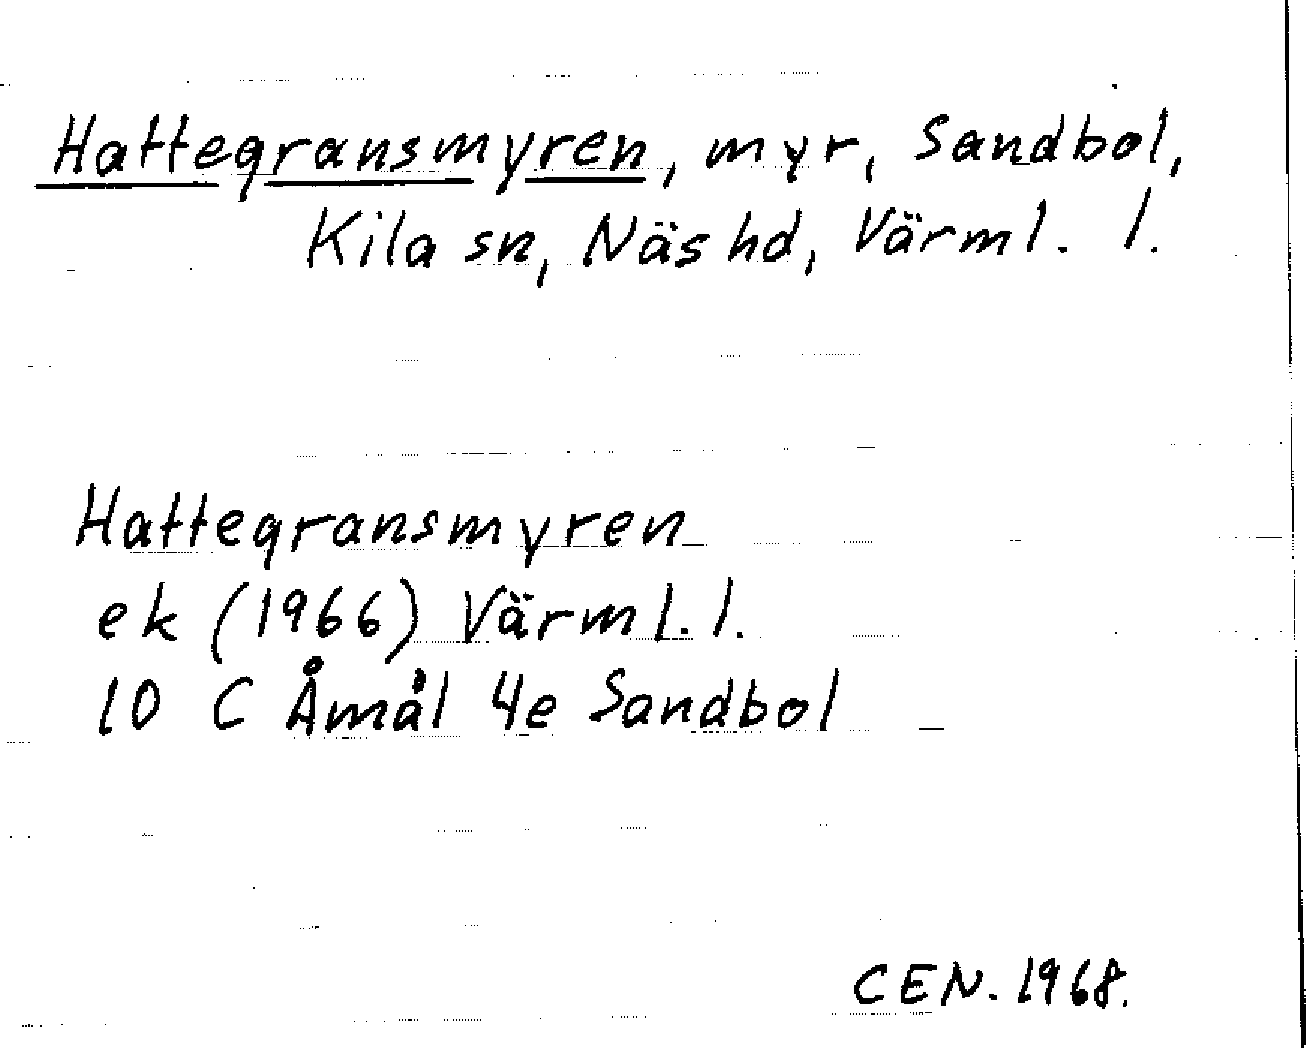 Hattegransmyren, myr, Sandbol,
Kila sn, Näs hd, Värml. l.
Hattegransmyren
ek (1966) Värml. l.
10 C Åmål 4e Sandbol
CEN. 1968.